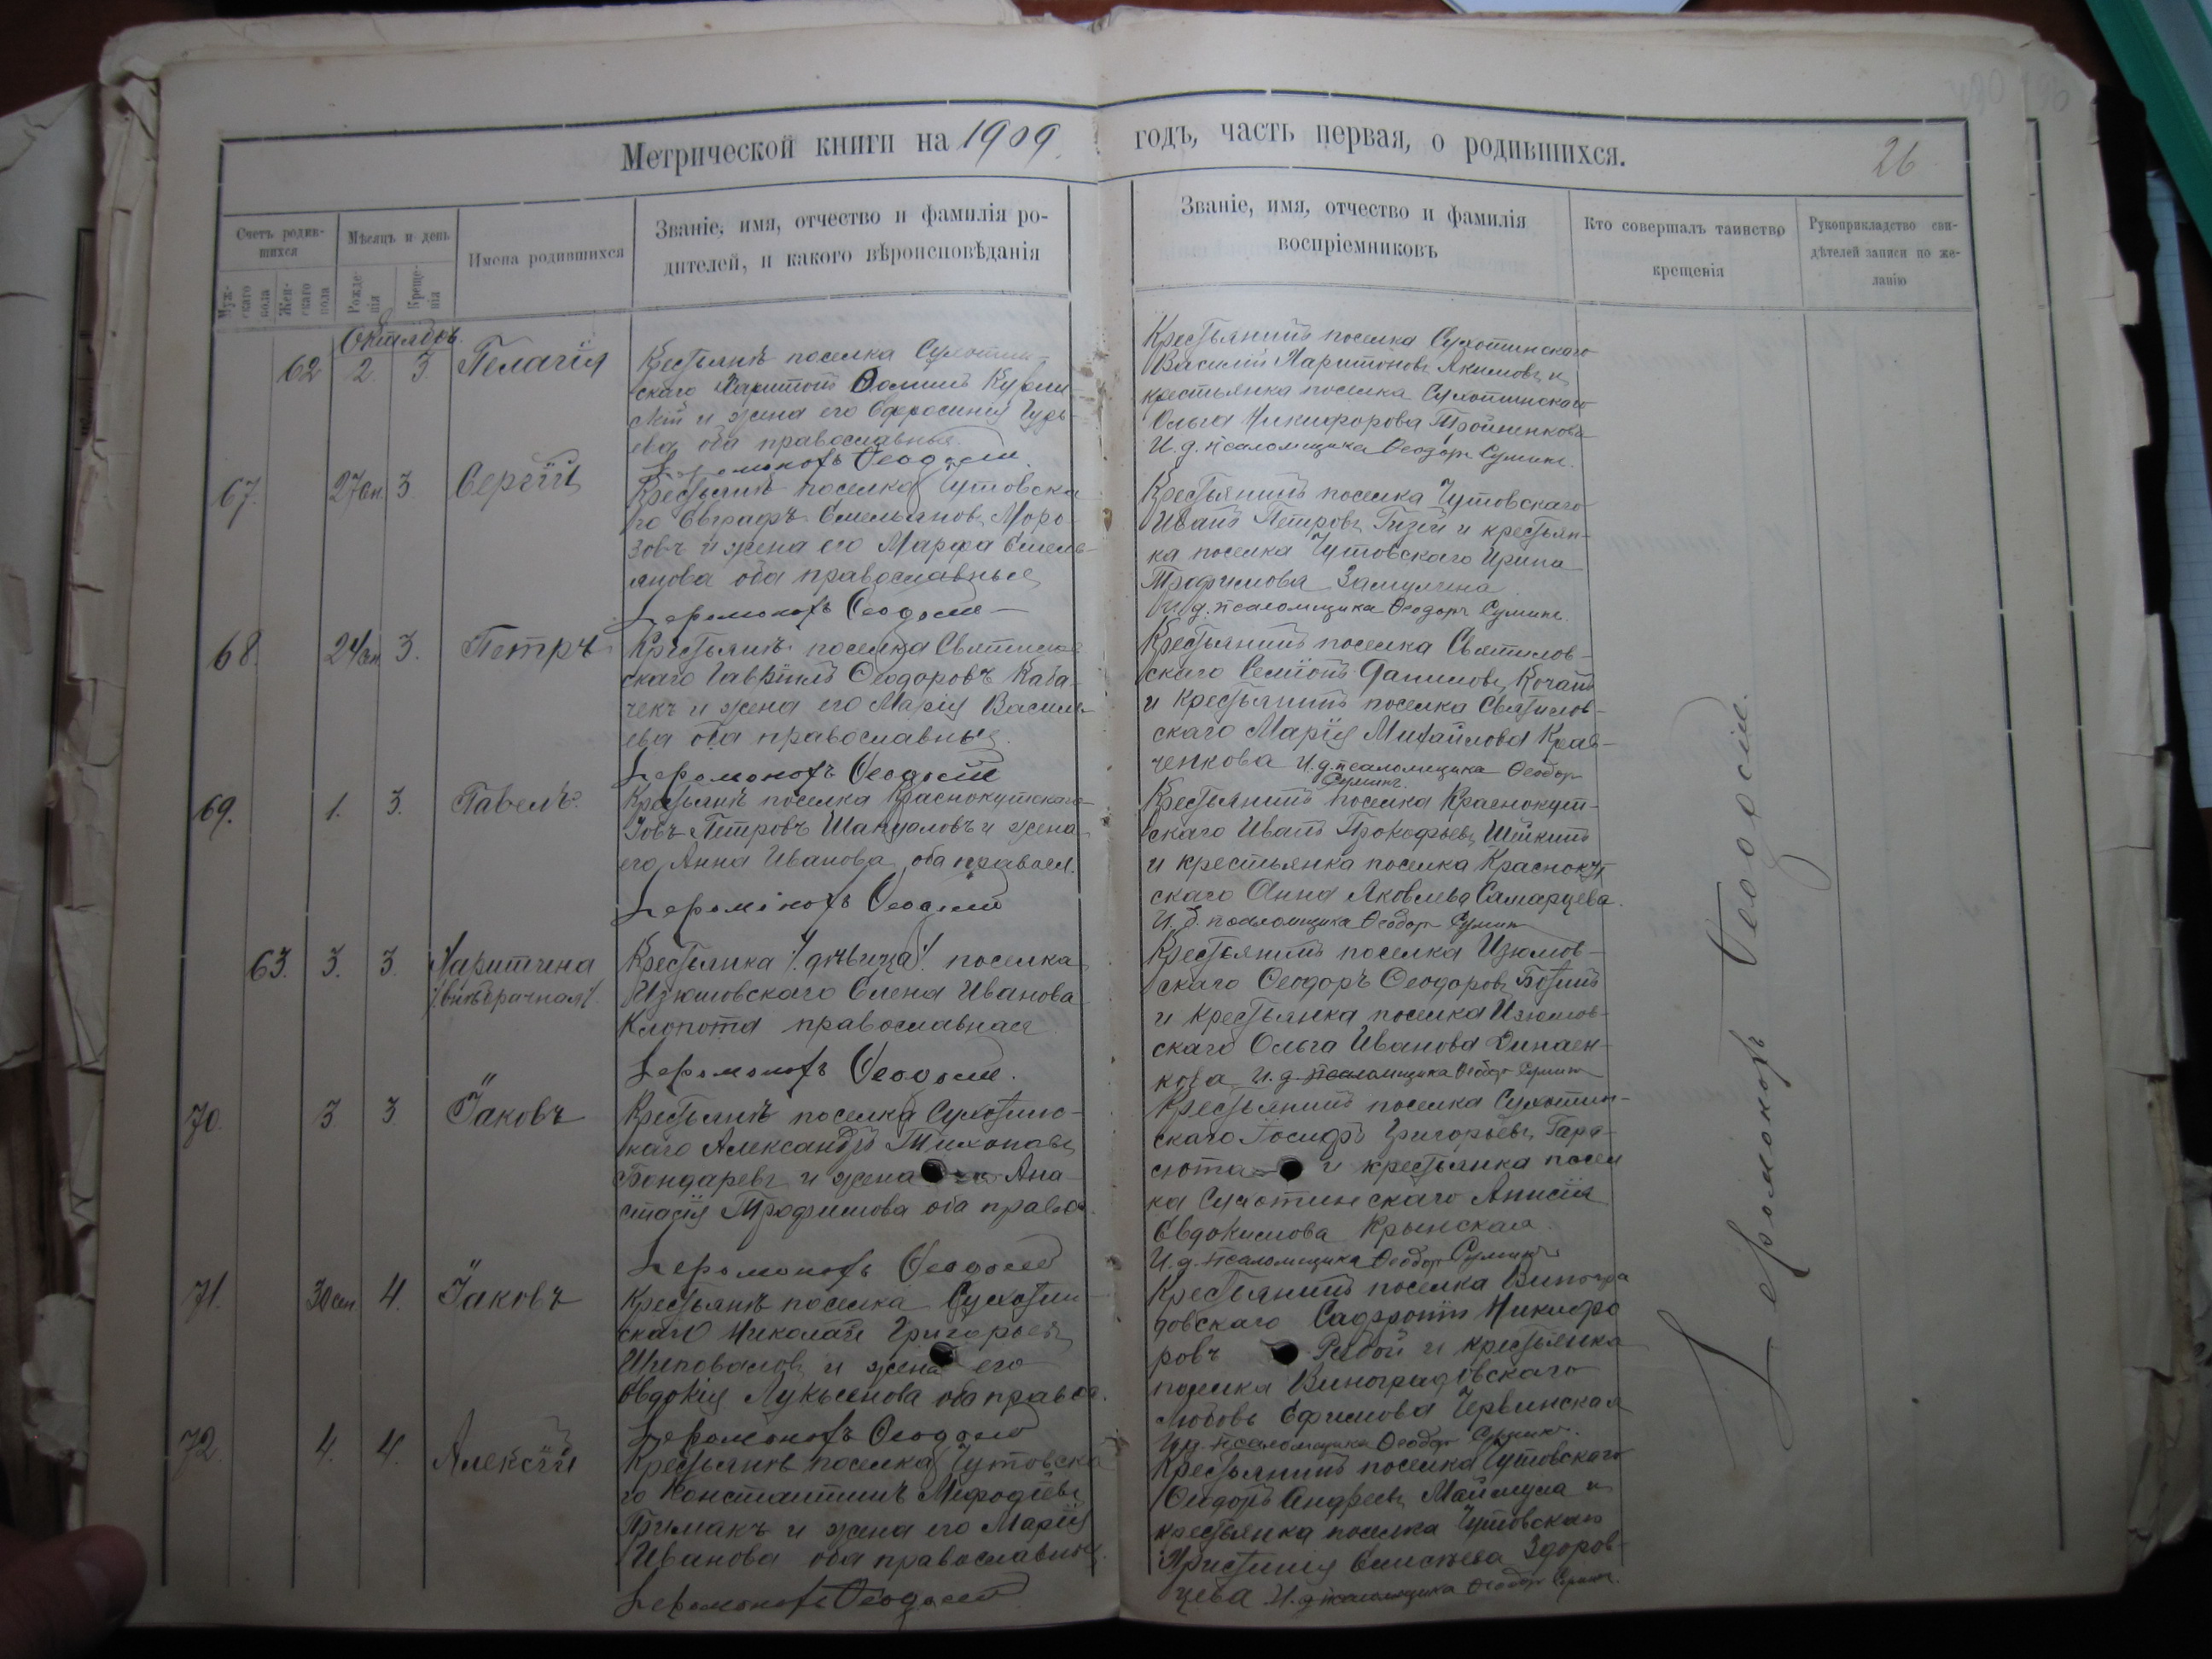 Метрической книги на 1909
годъ, часть первая, о родившихся.
26
Счетъ родив-
шихся
Мѣсяцъ и день
Имена родившихся
Званіе, имя, отчество и фамилія ро-
дителей, и какого вѣроисповѣданія
Званіе, имя, отчество и фамилія
воспріемниковъ
Кто совершалъ таинство
крещенія
Рукоприкладство сви-
дѣтелей записи по же-
ланію
Муж-
скаго
пола
Жен-
скаго
пола
Рожде-
нія
Креще-
нія
Октябрь
62 2. 3. Пелагія
поселка
скаго Харитонъ
и жена его Евфросинія
ева оба православные
Іеромонахъ Ѳеодосій
Крестьянинъ поселка Сухотинскаго
Василій Харитоновъ Акимовъ и
крестьянка поселка Сухотинскаго
Ольга Никифорова
И. д. псаломщика Ѳеодоръ Суминъ.
67. 27 сен. 3. Сергій
Крестьянинъ поселка Чутовска
го Евграфъ Емельяновъ Моро-
зовъ и жена его Марфа Емель-
янова оба православные
Іеромонахъ Ѳеодосій
Крестьянинъ поселка Чутовскаго
Иванъ Петровъ и крестьян-
ка поселка Чутовскаго Ирина
Трофимова
И. д. псаломщика Ѳеодоръ Суминъ.
68. 24 сен. 3. Петръ
поселка
скаго Гавріилъ Ѳеодоровъ Каба-
чекъ и жена его Марія Василь-
ева оба православные.
Іеромонахъ Ѳеодосій
Крестьянинъ поселка Святилов-
скаго Семіонъ Даниловъ Кочанъ
и крестьянинъ поселка Святилов-
скаго Марія Михайлова Крав-
ченкова И. д. псаломщика Ѳеодоръ
Суминъ.
69. 1. 3. Павелъ.
поселка Краснокутскаго
Іовъ Петровъ Шаповаловъ и жена
его Анна Иванова, оба правосл.
Іеромонахъ Ѳеодосій
Крестьянинъ поселка Краснокут-
скаго Иванъ Прокофьевъ
и крестьянка поселка Краснокут
скаго Анна Яковлева Самарцева.
И. д. псаломщика Ѳеодоръ Сумин
63. 3. 3. Харитина
/внѣбрачная/.
Крестьянка /. дѣвица /. поселка
Изюмовскаго Елена Иванова
Клопота православная
Іеромонахъ Ѳеодосій.
Крестьянинъ поселка Изюмов-
скаго Ѳеодоръ Ѳеодоровъ
и крестьянка поселка Изюмов-
скаго Ольга Иванова
кова И. д. псаломщика Ѳеодоръ Сумин
70. 3 3. Іаковъ
поселка Сухотинс-
каго Александръ
Бондаревъ и жена его Ана-
стасія Трофимова оба правос.
Іеромонахъ Ѳеодосій
Крестьянинъ поселка Сухотин-
скаго Іосифъ Григорьевъ Гара-
сюта и крестьянка посел
ка Сухотинскаго Анисія
Евдокимова Крынская.
И. д. псаломщика Ѳеодоръ Суминъ
71. 30 сен 4. Іаковъ
поселка Сухотин-
скаго Николай Григорьевъ
Шиповаловъ и жена его
Евдокія Лукьянова оба правос.
Іеромонахъ Ѳеодосій
Крестьянинъ поселка Виногра
довскаго Никифо
ровъ Рябой и крестьянка
поселка Виноградовскаго
Любовь Ефимова Червинская
И. д. псаломщика Ѳеодоръ Сумин.
72. 4. 4. Алексій
поселка Чутовска
го Константинъ Меѳодіевъ
Примакъ и жена его Марія
Иванова оба православные.
Іеромонахъ Ѳеодосій
Крестьянинъ поселка Чутовскаго
Ѳеодоръ Андреевъ и
крестьянка поселка Чутовскаго
Христинія Елисѣева Здоров-
цева И. д. псаломщика Ѳеодоръ Сумин.
Іеромонахъ Ѳеодосій.